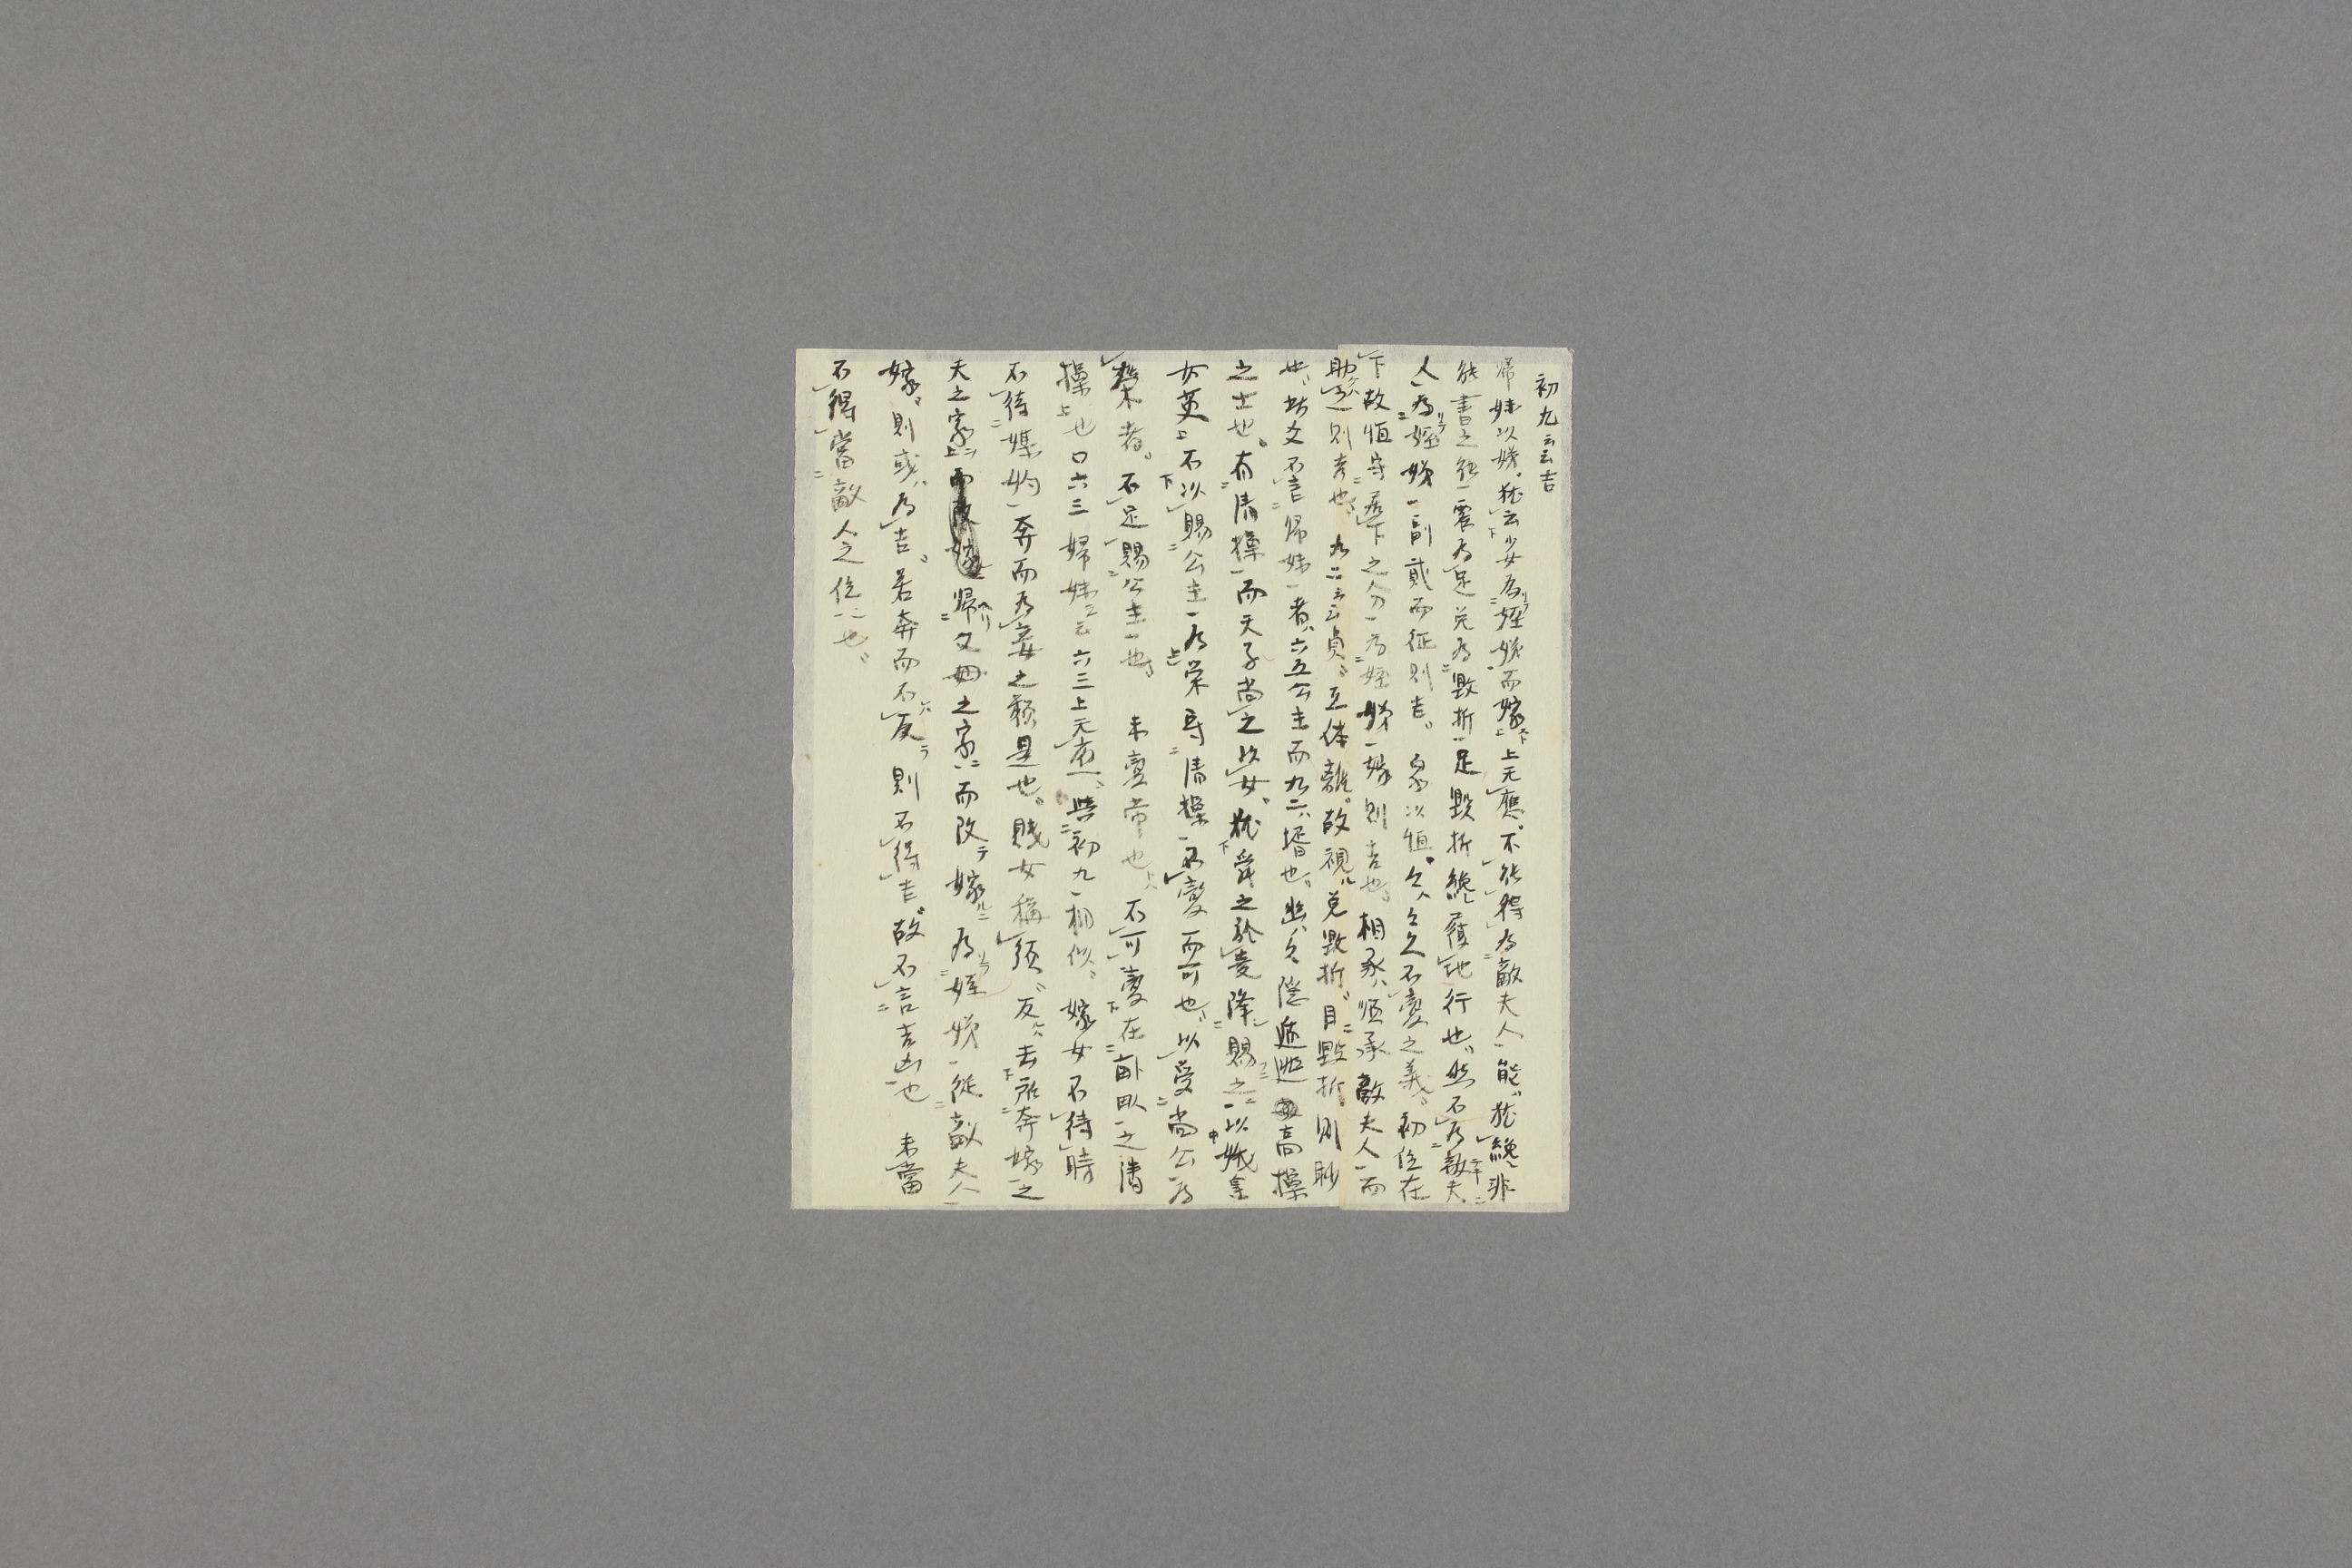 初九云云吉
帰妹以娣、犹云少女為姪娣而嫁、上无應、不能得為敵夫人、能、犹纔、非
能書之能、震為足兌為毀折、足毀折纔履地行也、然不為敵夫
人、為姪娣副貳而征則吉、象以恒、久、久不変之義、初位在
下故恒守居下之分、為姪娣嫁則吉也、相承、順承敵夫人而
助之則吉也、九二云云貞、互体離、故視、兌毀折、目毀折則眇
也、此爻不言帰妹者、六五公主而九二婿也、幽人隠遁高操
之士也、有清操而天子尚之以女、犹舜之於尭降賜之以娥皇
女英、不以賜公主為栄、守清操不変而可也、以受尚公為
栄者、不足賜公主也、未変常也、不可変在畝畎之清
操也 六三帰妹云云六三上无應、与初九相似、嫁女不待時
不待媒妁奔而為妾之類是也、賤女称須、反去所奔嫁之
夫之家而帰父母之家而改嫁為姪娣従敵夫人
嫁、則或為吉、若奔而不反則不得吉、故不言吉凶也 未當
不得當敵人之位也、